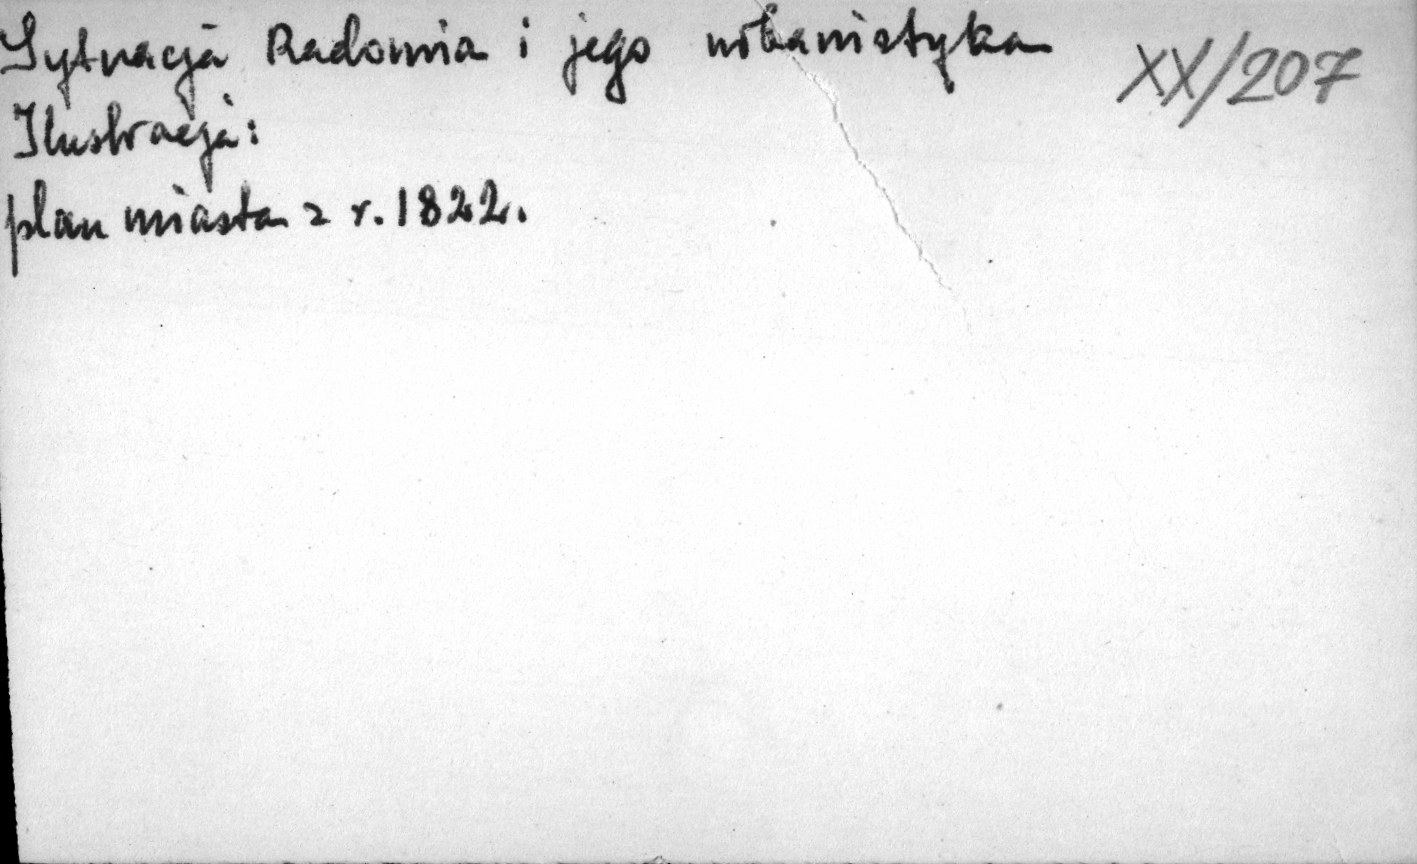 Sytuacja Radomia i jego urbanistyka XX/207
Ilustracja:
plan miasta z r. 1822.